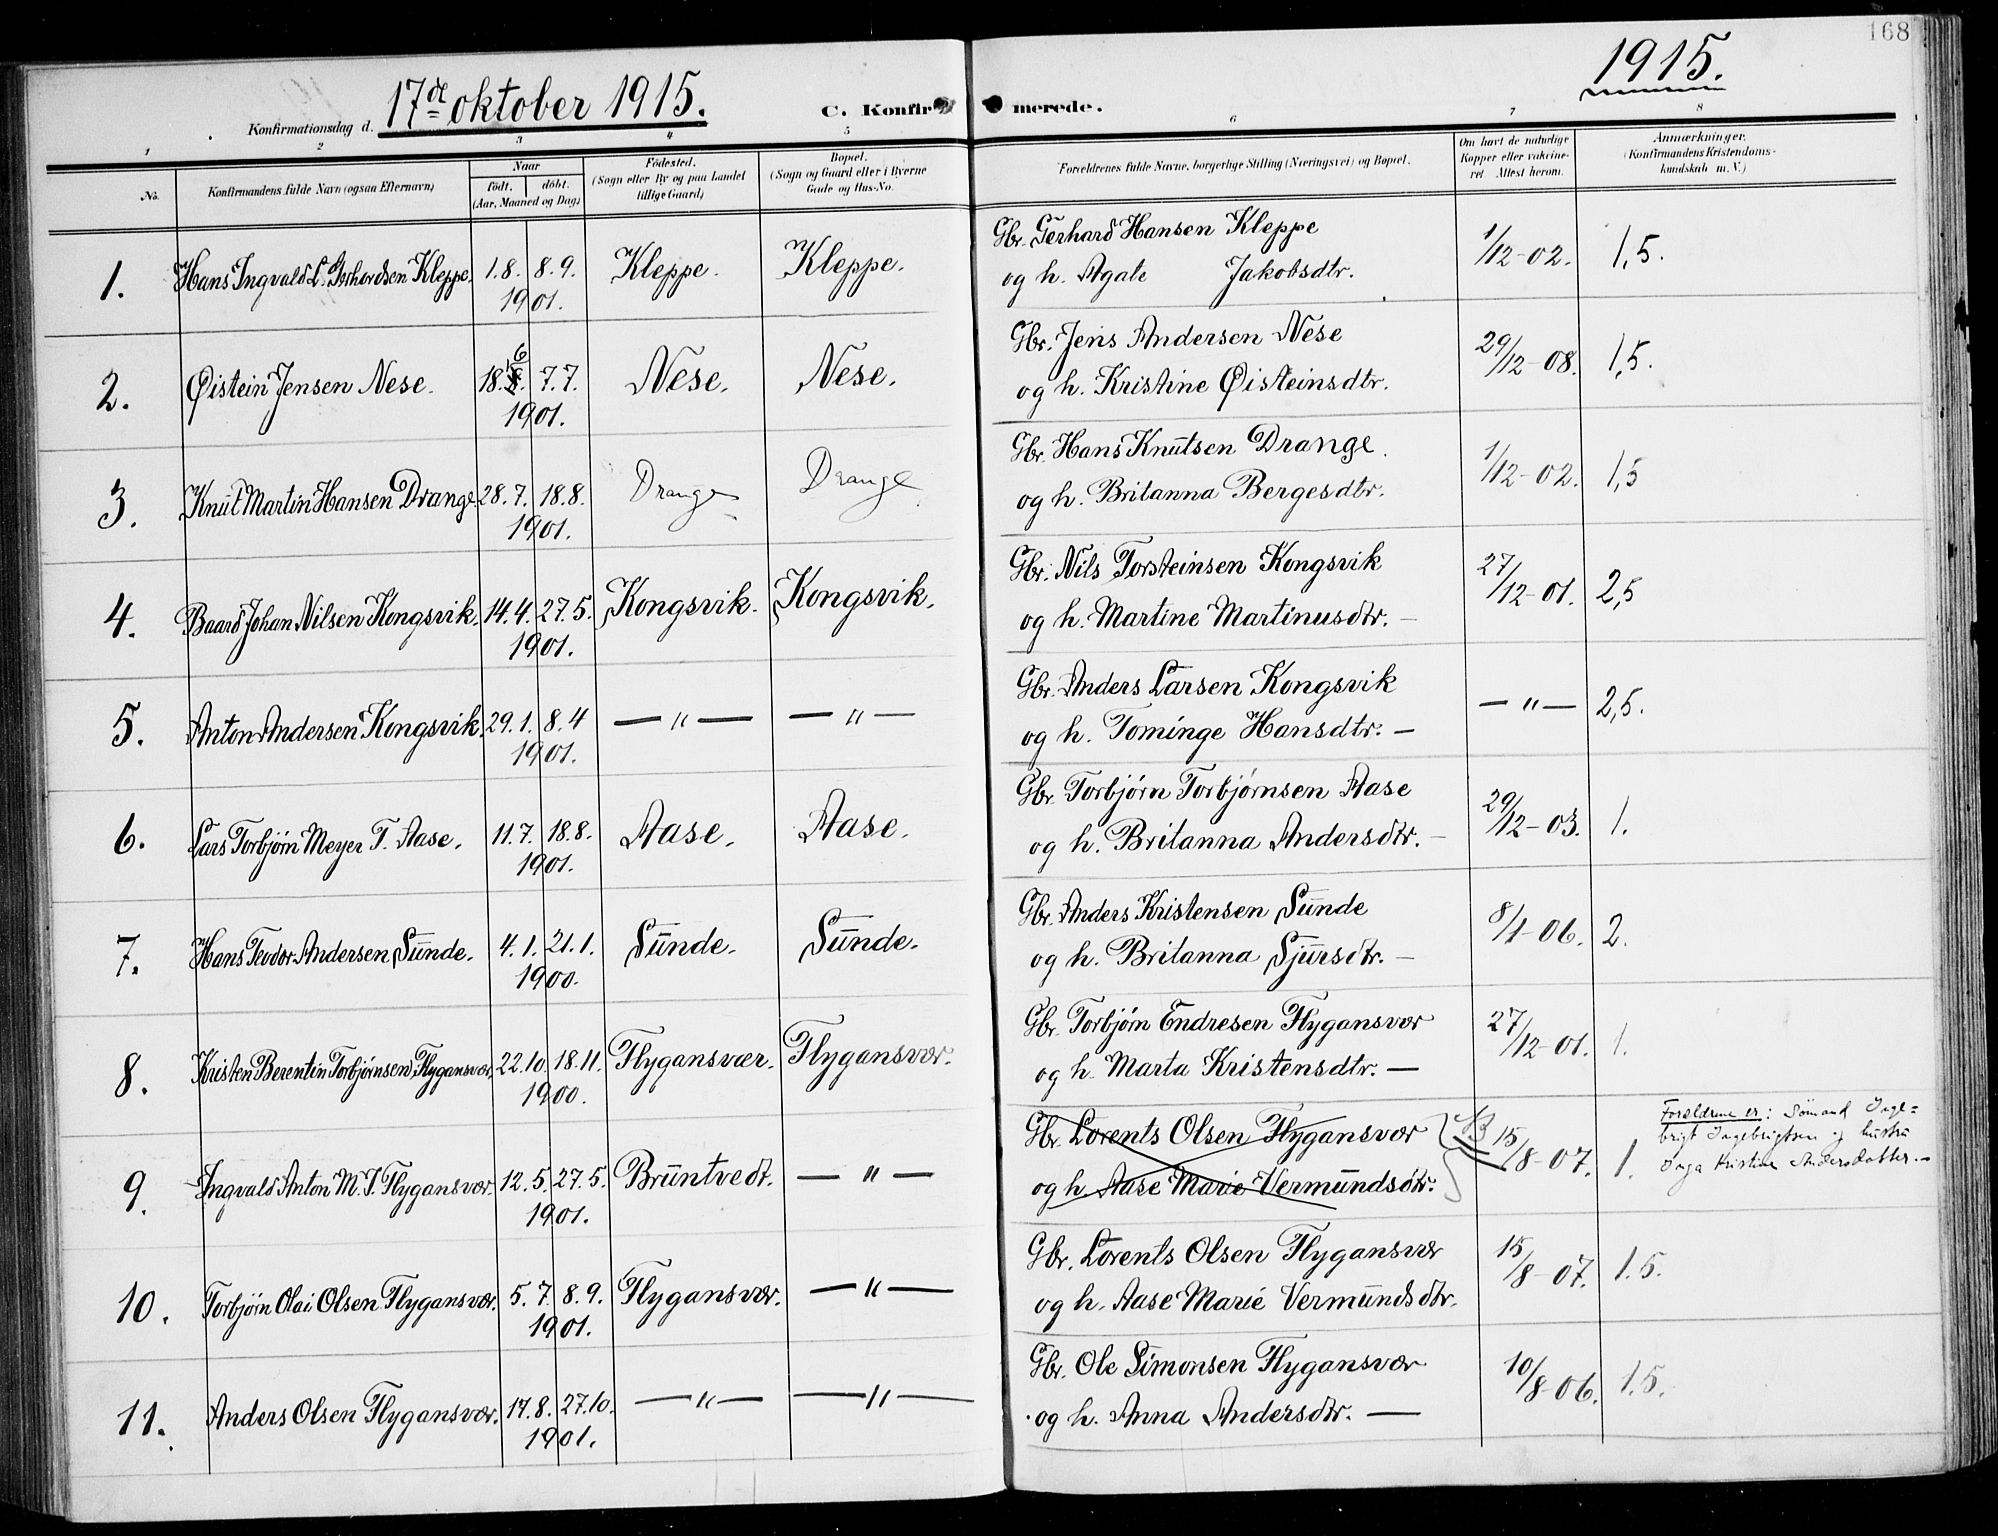 168
1915.
Konfirmationsdag d. 17de oktober 1915. C. Konfir merede.
1 2 3 4 5 6 7 8
No. Konfirmandens fulde Navn (ogsaa Efternavn) Naar født. døbt. (Aar, Maaned og Dag) Fødested. (Sogn eller By og paa Landet tillige Gaard) Bopæl. (Sogn og Gaard eller i Byerne Gade og Hus-No. Forældrenes fulde Navne, borgerlige Stilling (Næringsvei) og Bopæl. Om havt de naturlige Kopper eller vakcineret Attest herom. Anmærkninger. (Konfirmandens Kristendomskundskab m. V.)
1. Hans Ingvald L. Gerhardsen Kleppe. 1.8. 8.9. Kleppe. Kleppe. Gbr. Gerhard Hansen Kleppe 1/12-02. 1,5.
1901. og h. Agate Jakobsdtr.
2. Øistein Jensen Nese. 18. 6 8. 7.7. Nese. Nese. Gbr. Jens Andersen Nese 29/12-08. 1,5.
1901. og h. Kristine Øisteinsdtr.
3. Knut Martin Hansen Drange. 28.7. 18.8. Drange Drange Gbr. Hans Knutsen Drange. 1/12-02. 1,5
1901. og h. Britanna Bergesdtr.
4. Baard Johan Nilsen Kongsvik. 14.4. 27.5. Kongsvik. Kongsvik. Gbr. Nils Torsteinsen Kongsvik 27/12-01. 2,5
1901. og h. Martine Martinusdtr. —
5. Anton Andersen Kongsvik. 29.1. 8.4 — " — — " — Gbr. Anders Larsen Kongsvik — " — 2,5.
1901. og h. Tominge Hansdtr. —
6. Lars Torbjørn Meyer T. Aase. 11.7. 18.8. Aase. Aase. Gbr. Torbjørn Torbjørnsen Aase 29/12-03. 1.
1901. og h. Britanna Andersdtr. —
7. Hans Teodor Andersen Sunde. 4.1. 21.1. Sunde. Sunde. Gbr. Anders Kristensen Sunde 8/1-06. 2.
1900. og h. Britanna Sjursdtr. —
8. Kristen Berentin Torbjørnsen Flygansvær. 22.10. 18.11. Flygansvær. Flygansvær. Gbr. Torbjørn Endresen Flygansvær 27/12-01. 1.
1900. og h. Marta Kristensdtr. —
9. Ingvald Anton M. I. Flygansvær. 12.5. 27.5. Bruntvedt. — " — Gbr. Lorents Olsen Flygansvær 15/8-07. 1. Forældrene er: Sømand Inge=
1901. og h. Aase Marie Vermundsdtr. brigt Ingebrigtsen og hustru
Inga Kristine Andersdatter. —
10. Torbjørn Olai Olsen Flygansvær. 5.7. 8.9. Flygansvær. — " — Gbr. Lorents Olsen Flygansvær 15/8-07. 1.5.
1901. og h. Aase Marie Vermundsdtr.
11. Anders Olsen Flygansvær. 17.8. 27.10. — " — — " — Gbr. Ole Simonsen Flygansvær 10/8-06. 1.5.
1901. og h. Anna Andersdtr. —